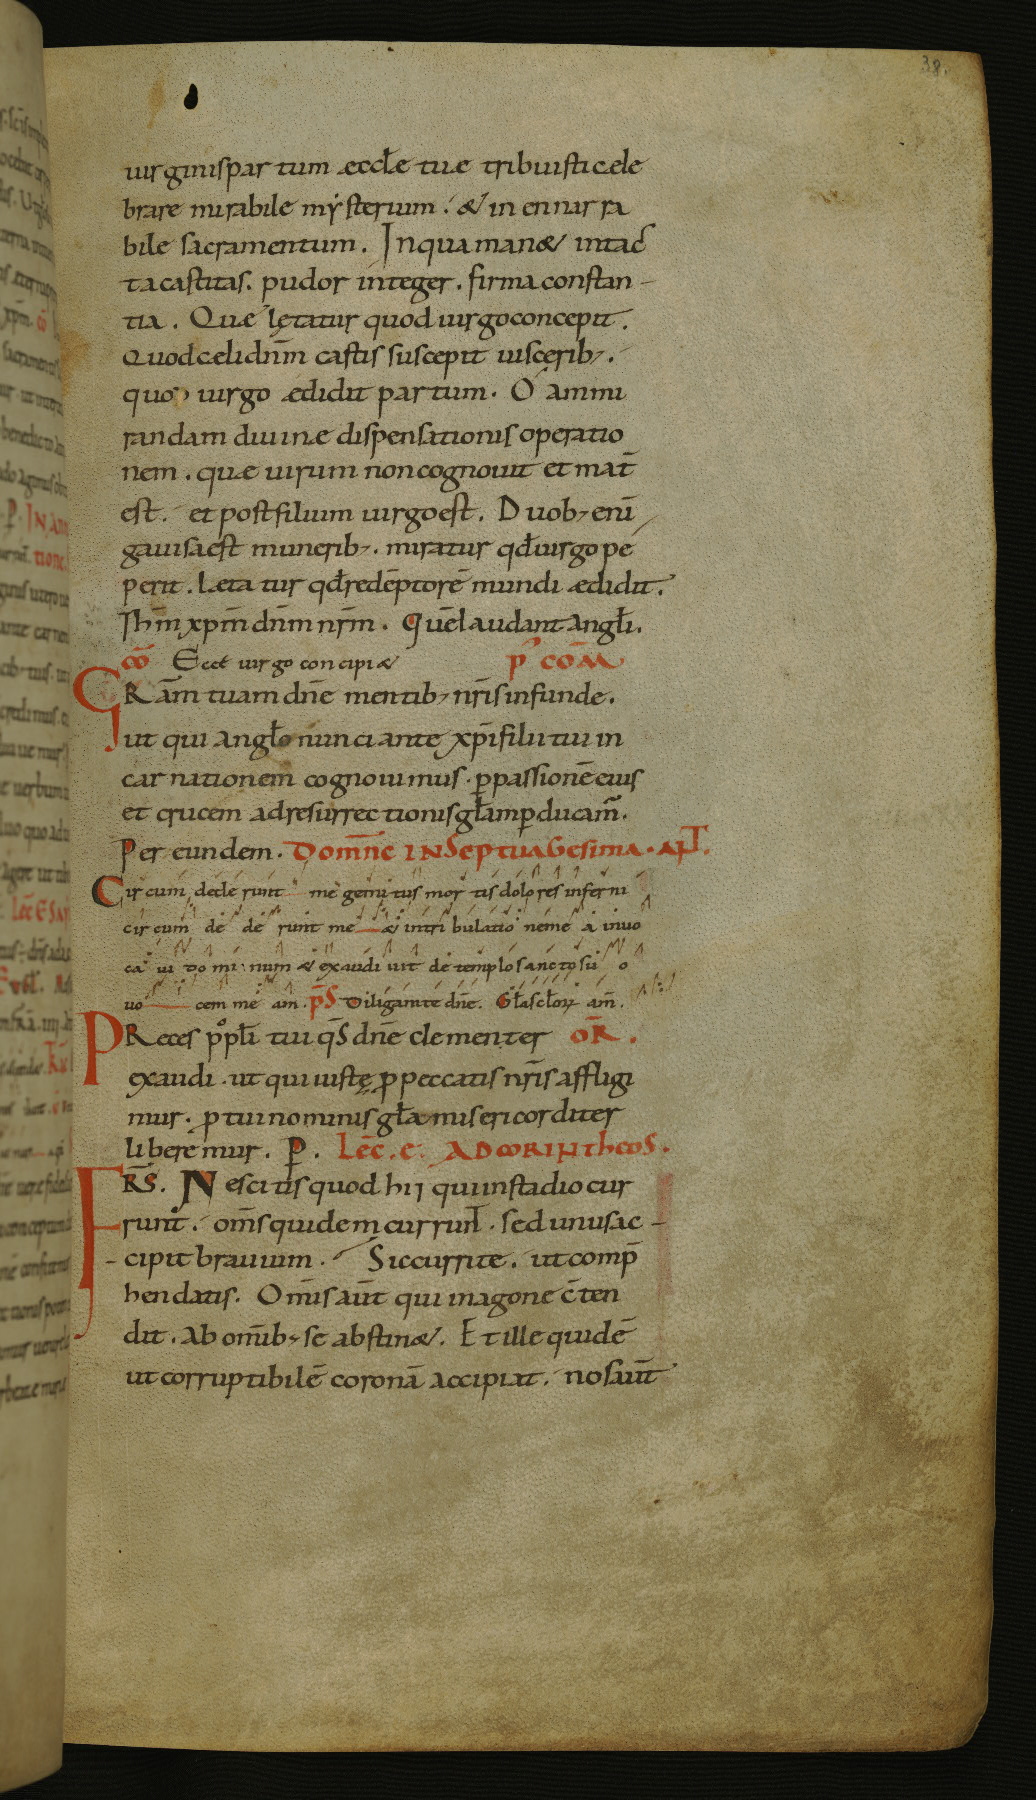 38.
uirginis partum æccłe tuæ tribuisti cele
brare mirabile mẏsterium. & in enarra
bile sacramentum. In qua man& intac
ta castitas. pudor integer. firma constan-
tia. Quæ lętatur quod uirgo concepit.
Quod cæli dn̄m castis suscepit uiscerib;.
quod uirgo ædidit partum. O ammi
randam diuinæ dispensationis operatio
nem. quæ uirum non cognouit et mat̄
est. et post filium uirgo est. Duob; eni
gauisa est munerib;. miratur qđ uirgo pe
perit. Læta tur qđ redēptorē mundi ædidit.
Ihm̄ xp̄m dn̄m nr̄m. Quē laudant angłi.
cō Ecce uirgo concipi& p' cōm
GRām tuam dn̄e mentib; nr̄is infunde.
ut qui angło nunciante xp̄i filii tui in
carnationem cognouimus. ꝑ passionē eius
et crucem ad resurrectionis głam ꝑducam̄.
Per eundem. Domn̄c in septuagesima. apt.
Circumdederunt me gemitus mortis dolores inferni
circum de de runt me & in tribulatione mea inuo
caui dominum & exaudiuit de templo sancto su o
uo cem me am. pS Diligam te dn̄e. Głas cłorꝝ am̄.
PReces ppłi tui qs̄ dn̄e clementer oR̄.
exaudi. ut qui iustę ꝓ peccatis nr̄is affligi
mur. ꝓ tui nominis gła misericorditer
liberemur. ꝑ. Lēc. e. AD CORINTHEOS.
FRS̄. Nescitis quod hii qui in stadio cur
runt. om̄s quidem currunt. sed unus ac-
cipit brauium. Sic currite. ut comp̄
hendatis. Om̄is aut̄ qui in agone c̄ten
dit. Ab om̄ib; se abstin&. Et ille quidē
ut corruptibilē coronā accipiat. nos aut̄